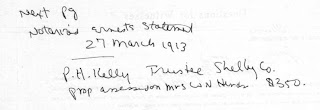 Next pg
Notarios Ernests Statement
27 March 1913
P.H. Kelly Trustee Shelby Co.
prop assession Mrs W N Hines $350.